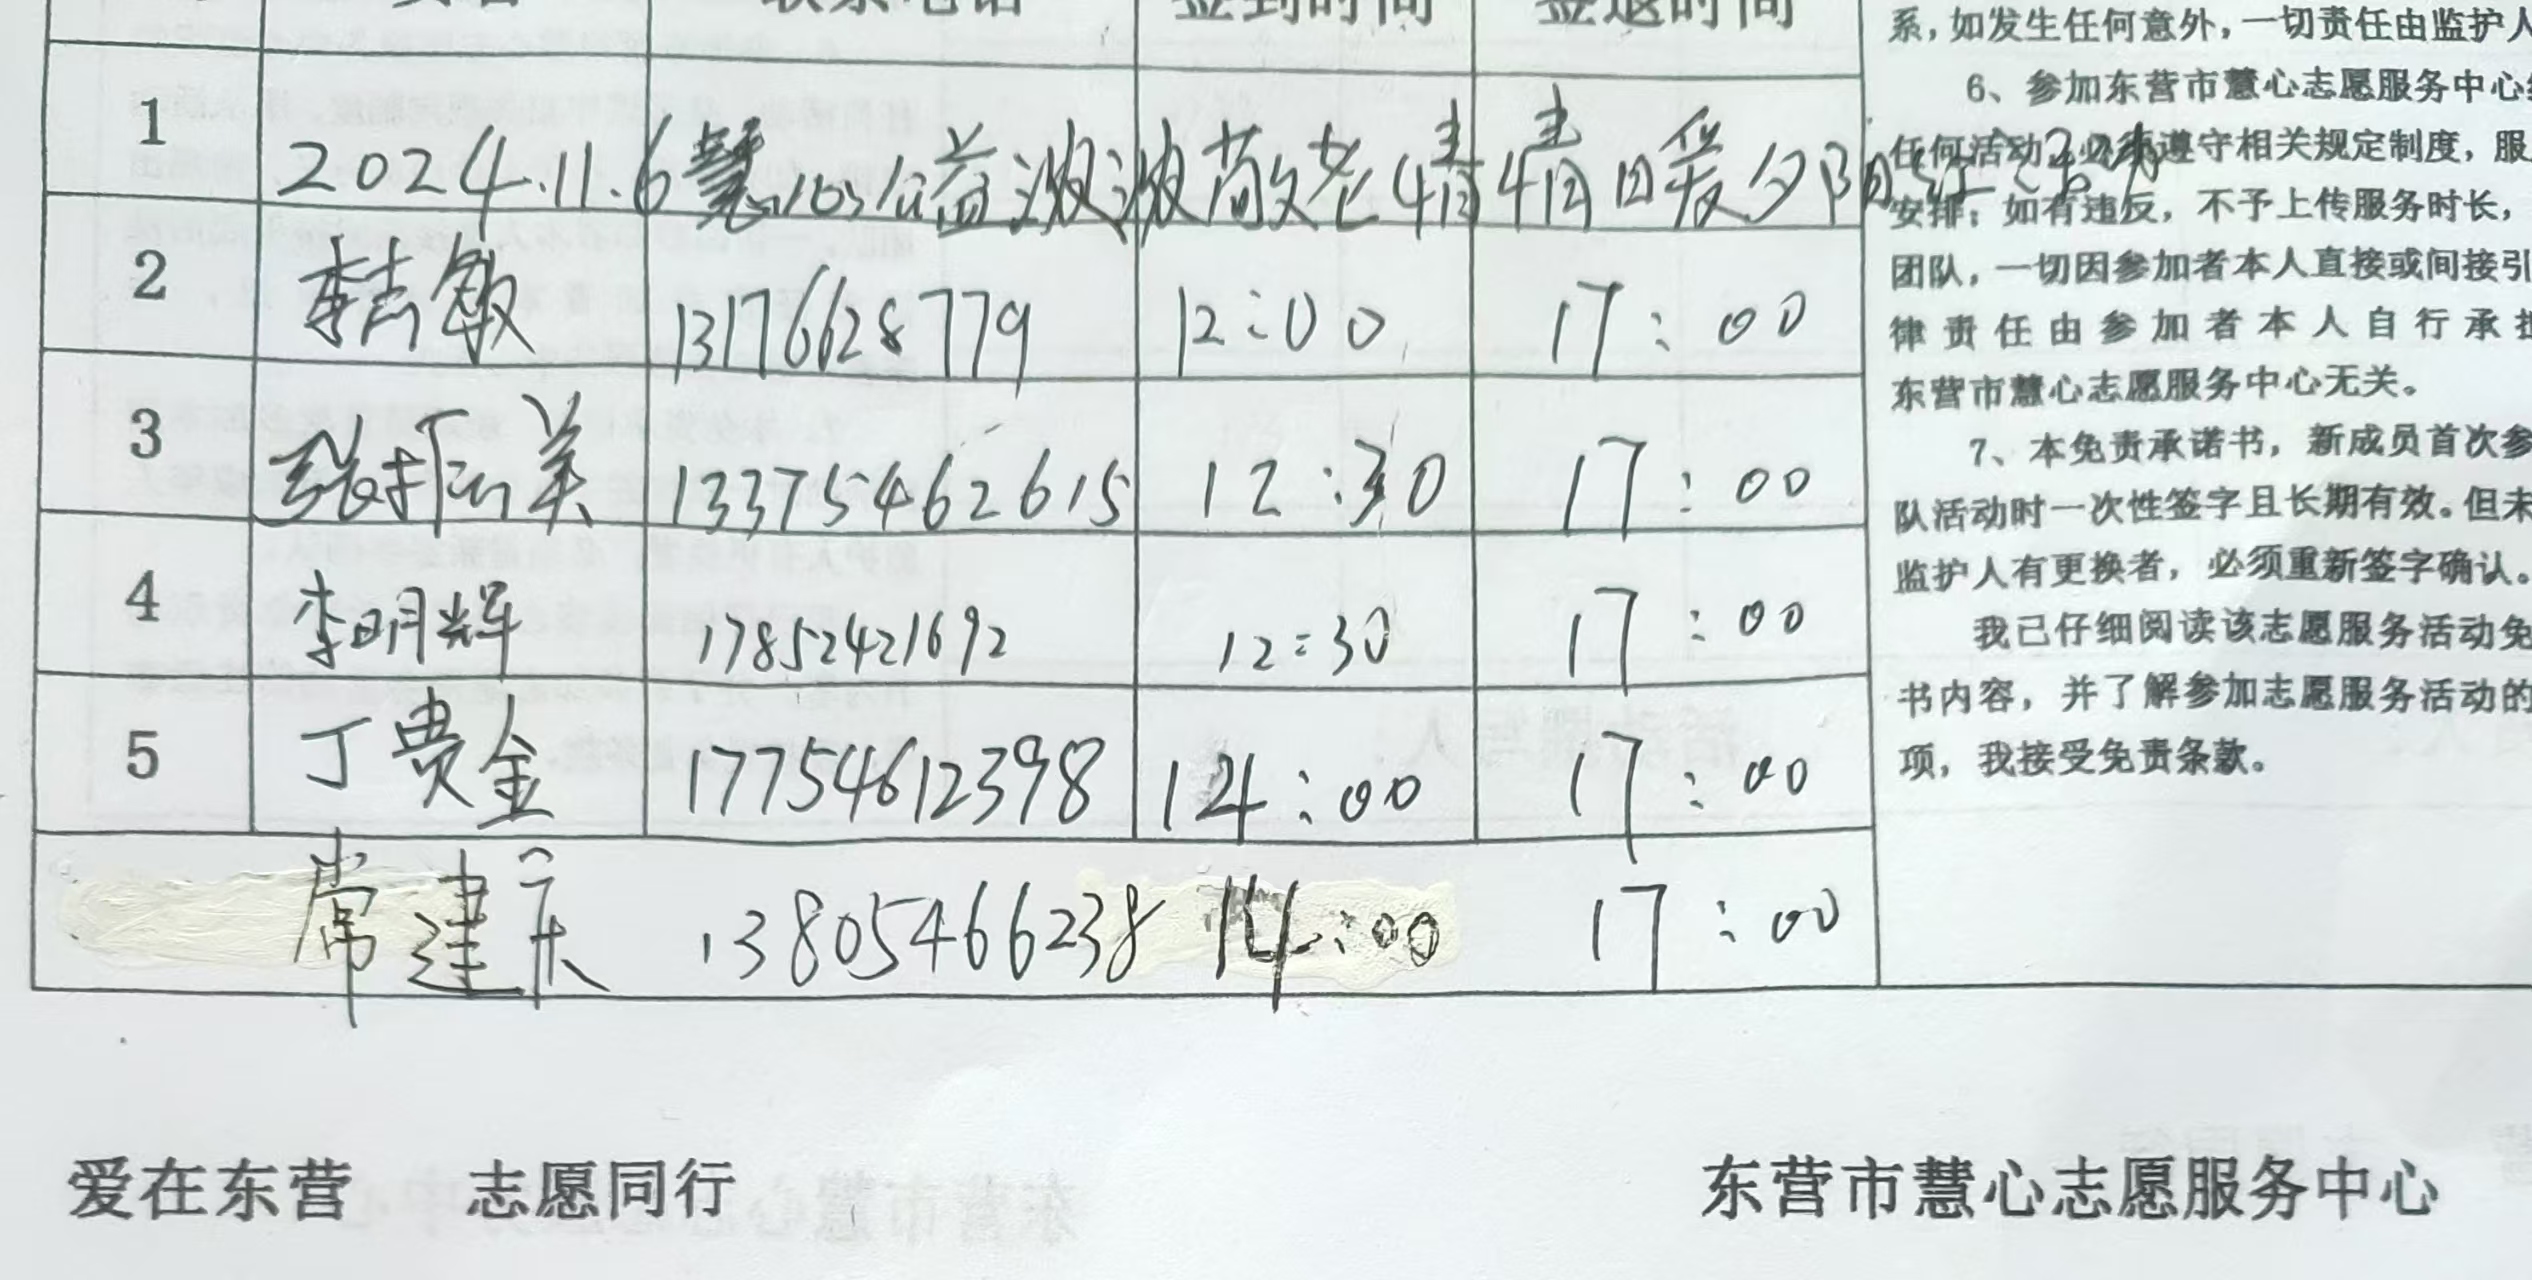 联系电话 签到时间 签退时间
1 2024.11.6慧心公益波波敬老情情日暖夕阳红
2 李志敏 13176628779 12:00 17:00
3 张振美 13375462615 12:30 17:00
4 李明辉 17852421692 12:30 17:00
5 丁费金 17754612398 14:00 17:00
常建 13805466238 14:00 17:00
系，如发生任何意外，一切责任由监护人
6、参加东营市慧心志愿服务中心
任何活动 必须遵守相关规定制度，服
安排；如有违反，不予上传服务时长，
团队，一切因参加者本人直接或间接引
律责任由参加者本人自行承担
东营市慧心志愿服务中心无关。
7、本免责承诺书，新成员首次参
队活动时一次性签字且长期有效。但未
监护人有更换者，必须重新签字确认。
我已仔细阅读该志愿服务活动免
书内容，并了解参加志愿服务活动的
项，我接受免责条款。
爱在东营 志愿同行
东营市慧心志愿服务中心